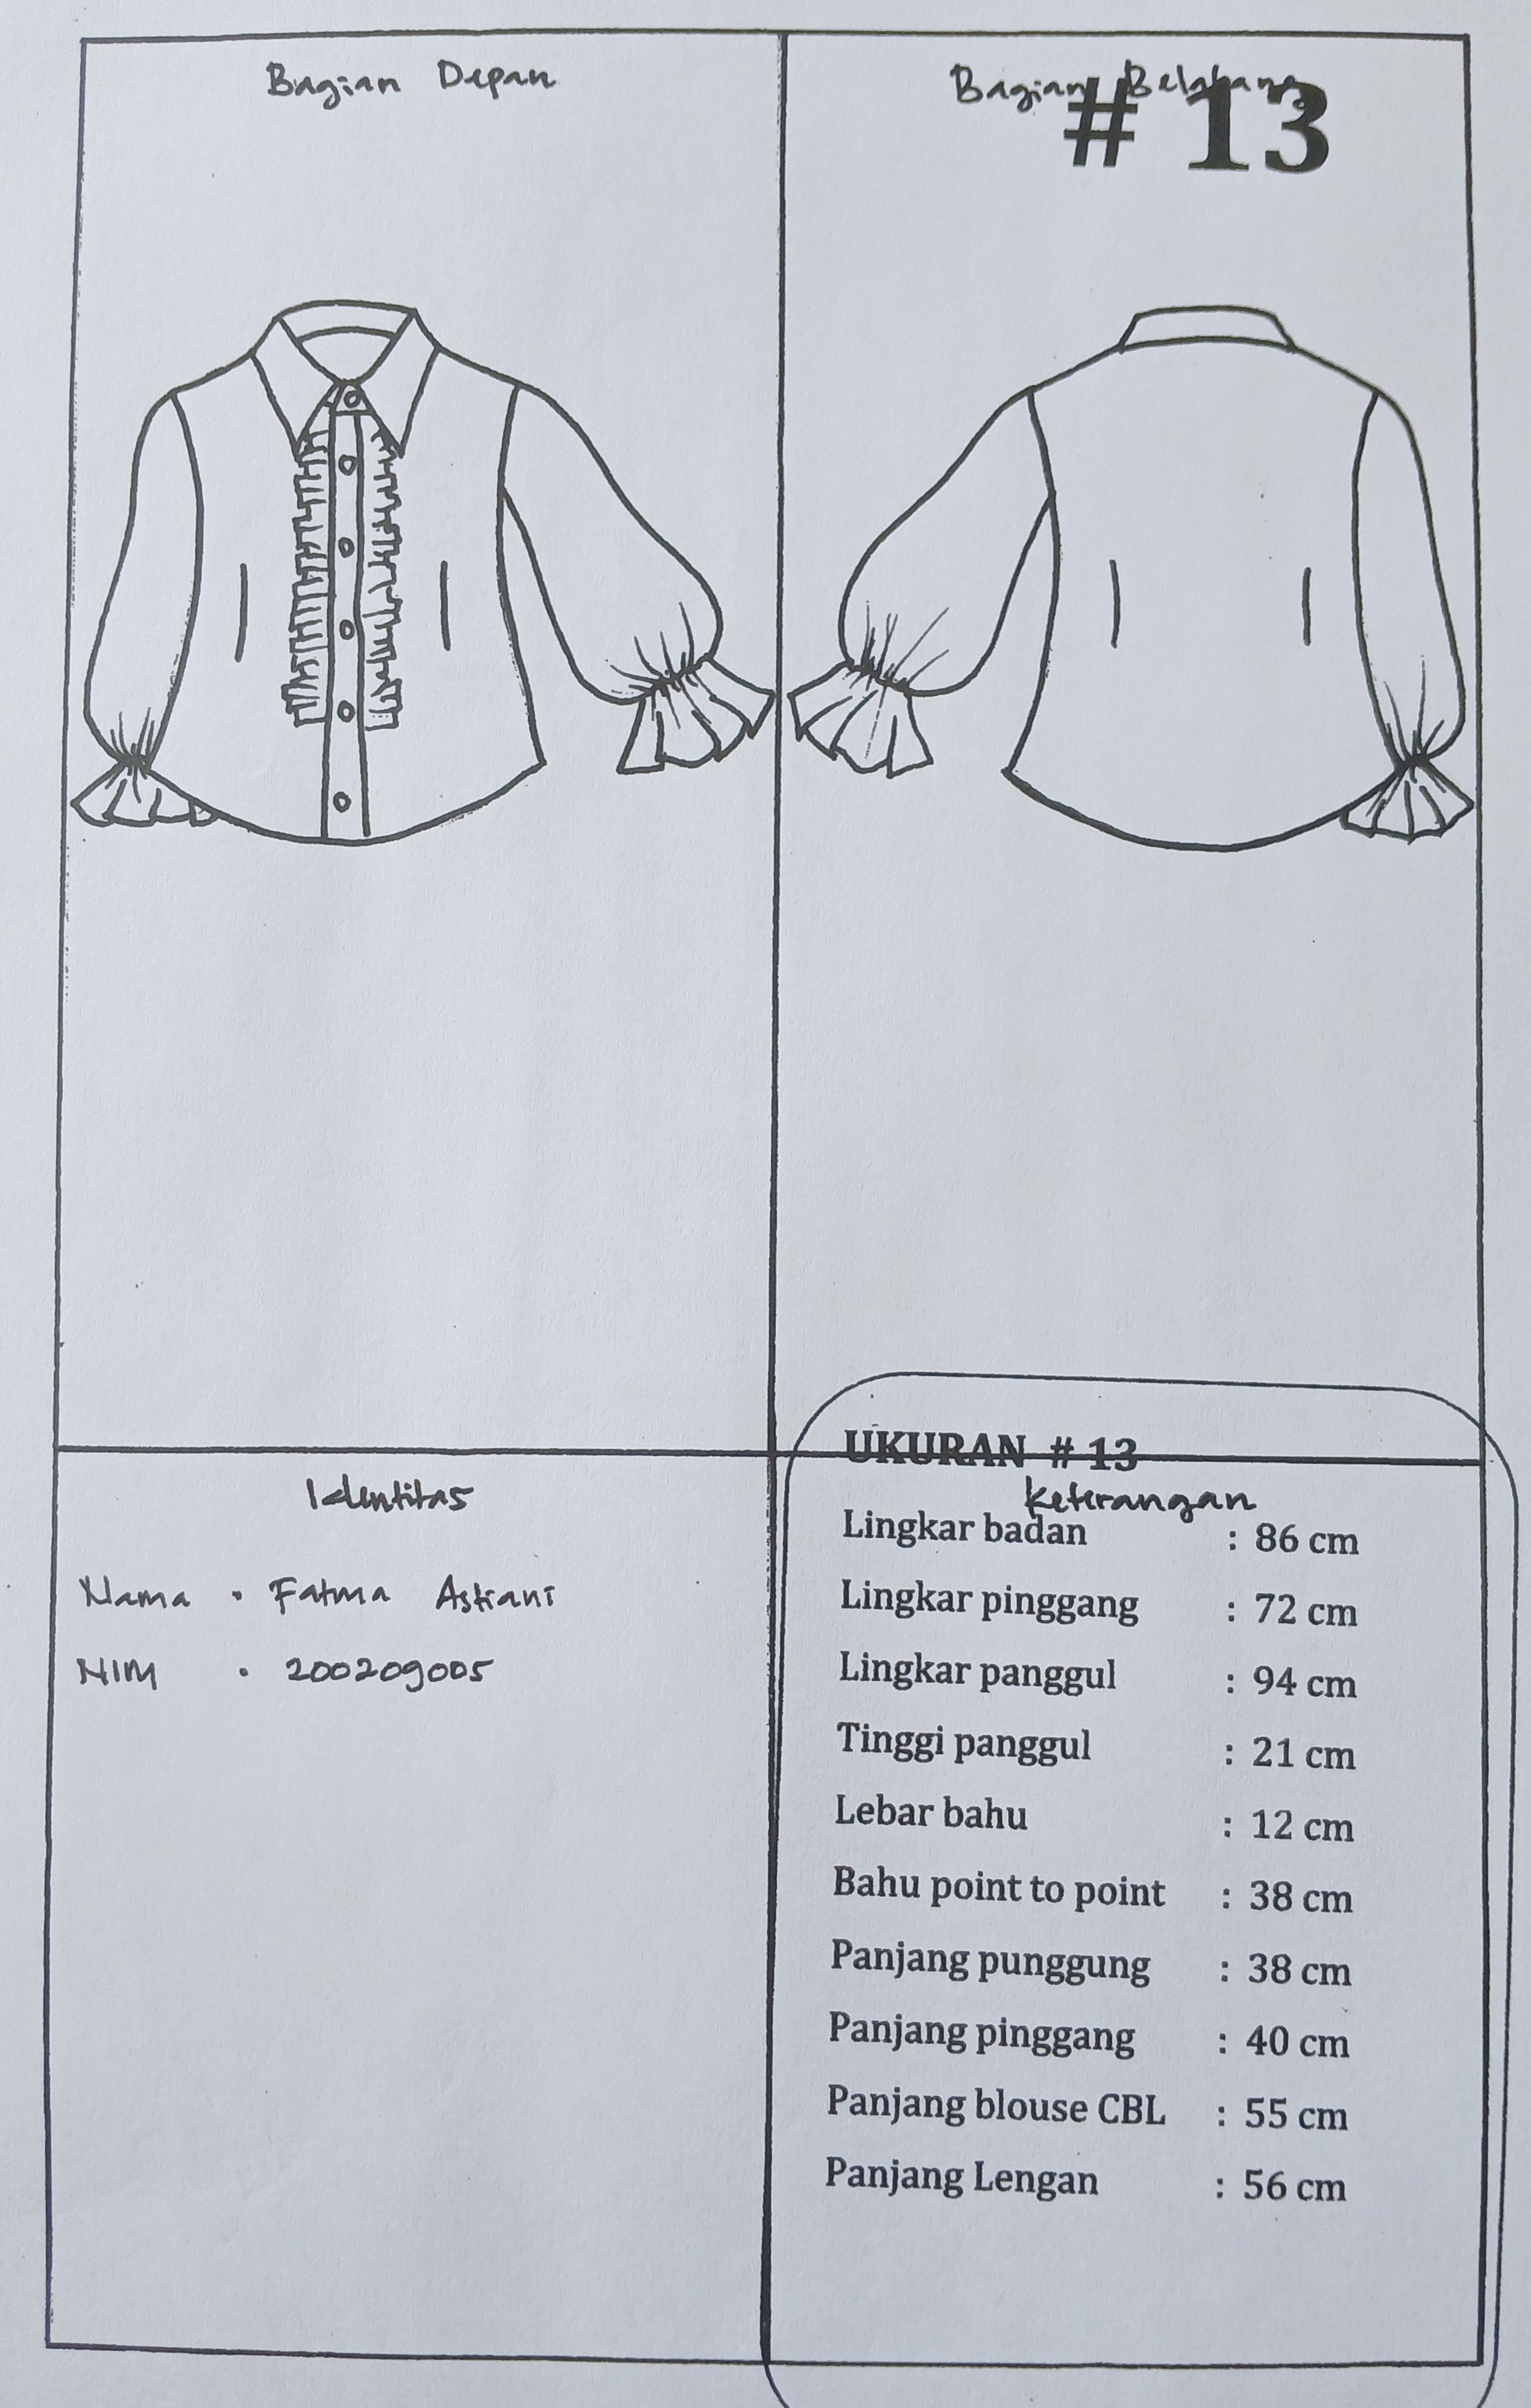 Bagian Depan
Bagian Belakang
# 13
Identitas
Nama : Fatma Astiani
NIM : 200209005
UKURAN # 13
Keterangan
Lingkar badan : 86 cm
Lingkar pinggang : 72 cm
Lingkar panggul : 94 cm
Tinggi panggul : 21 cm
Lebar bahu : 12 cm
Bahu point to point : 38 cm
Panjang punggung : 38 cm
Panjang pinggang : 40 cm
Panjang blouse CBL : 55 cm
Panjang Lengan : 56 cm